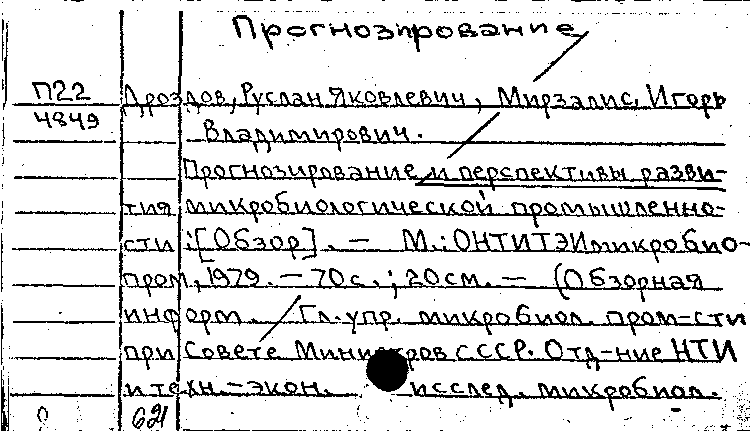 Прогнозирование
П22 Дроздов, Руслан Яковлевич, Мирзалис, Игорь
4849 Владимирович.
Прогнозирование и перспективы разви-
тия микробиологической промышленно-
сти: [Обзор]. — М.: ОНТИТЭИмикробио-
пром, 1979. — 70 с.; 20 см. — (Обзорная
информ. / Гл. упр. микробиол. пром-сти
при Совете Министров СССР. Отд-ние НТИ
и техн.-экон. исслед. микробиол.
621